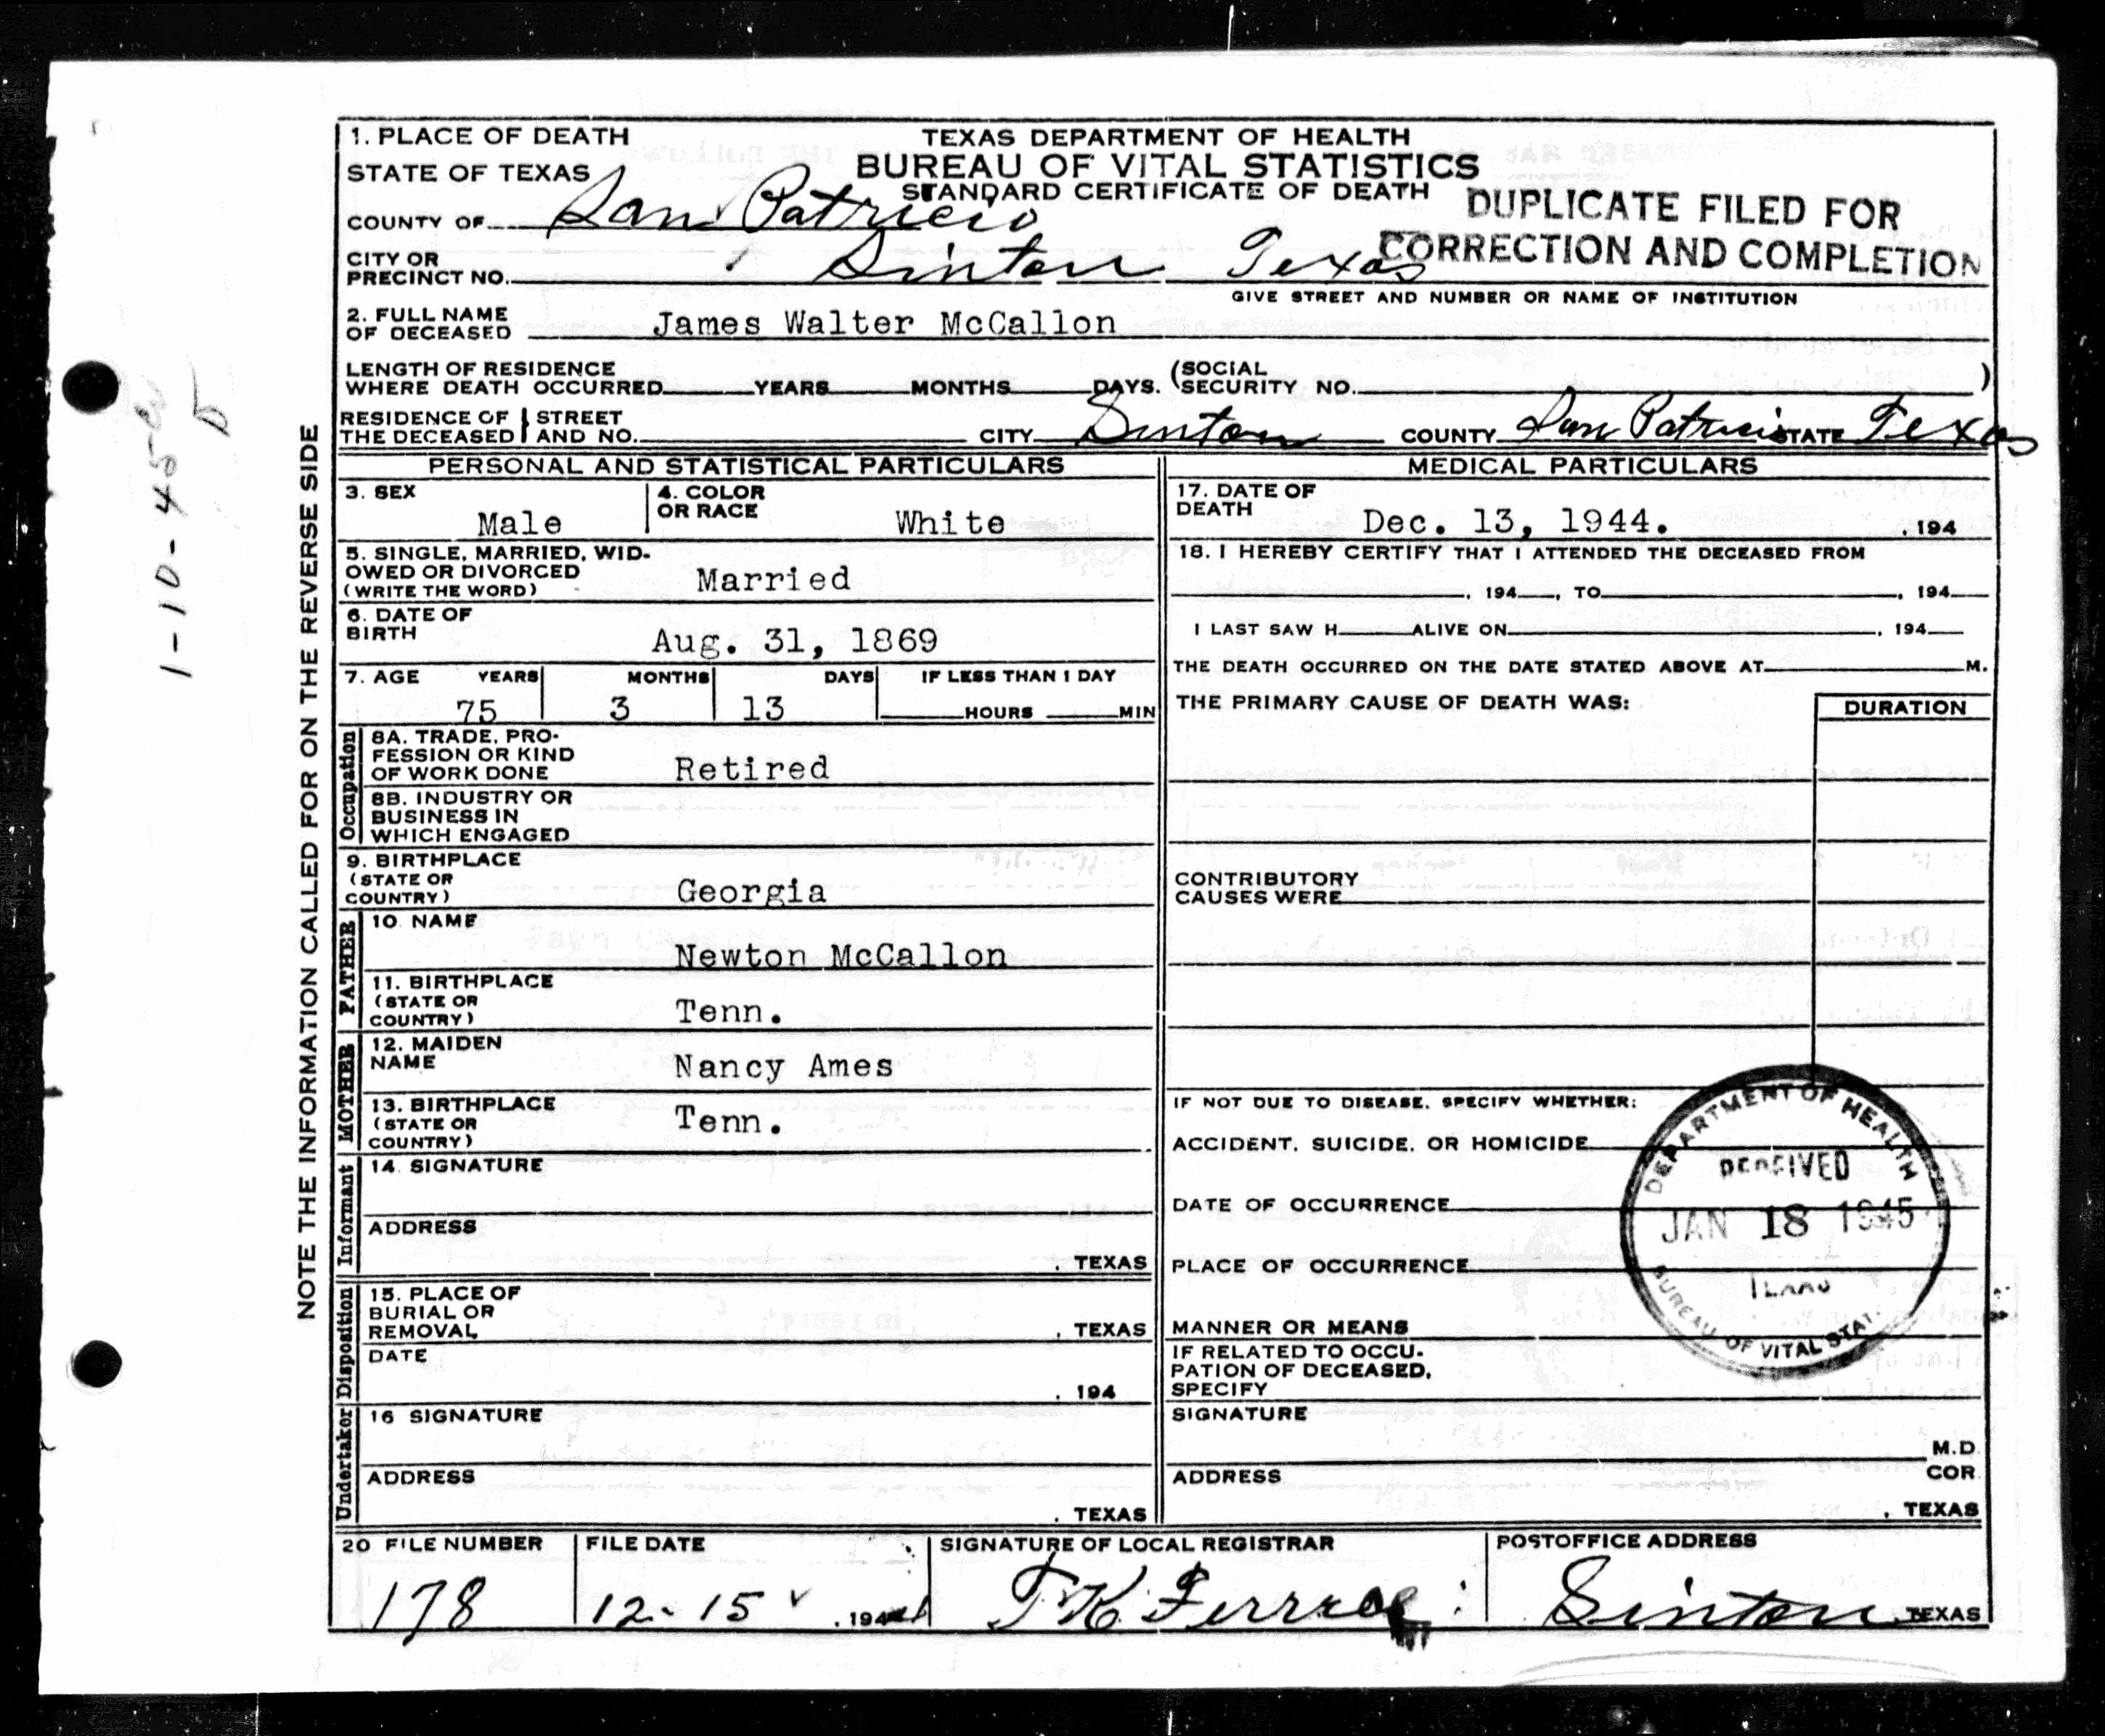 1. PLACE OF DEATH
TEXAS DEPARTMENT OF HEALTH
BUREAU OF VITAL STATISTICS
STANDARD CERTIFICATE OF DEATH
DUPLICATE FILED FOR
CORRECTION AND COMPLETION
STATE OF TEXAS
COUNTY OF San Patricio
CITY OR
PRECINCT NO. Sinton Texas
GIVE STREET AND NUMBER OR NAME OF INSTITUTION
2. FULL NAME
OF DECEASED James Walter McCallon
LENGTH OF RESIDENCE
WHERE DEATH OCCURRED YEARS MONTHS DAYS. (SOCIAL
SECURITY NO. )
RESIDENCE OF STREET
THE DECEASED AND NO. CITY Sinton COUNTY San Patricio STATE Texas
NOTE THE INFORMATION CALLED FOR ON THE REVERSE SIDE
1-10-45
PERSONAL AND STATISTICAL PARTICULARS
3. SEX
Male
4. COLOR
OR RACE White
5. SINGLE, MARRIED, WID-
OWED OR DIVORCED
(WRITE THE WORD) Married
6. DATE OF
BIRTH Aug. 31, 1869
7. AGE YEARS MONTHS DAYS IF LESS THAN 1 DAY
75 3 13 HOURS MIN
Occupation
8A. TRADE, PRO-
FESSION OR KIND
OF WORK DONE Retired
8B. INDUSTRY OR
BUSINESS IN
WHICH ENGAGED
9. BIRTHPLACE
(STATE OR
COUNTRY) Georgia
FATHER
10. NAME
Newton McCallon
11. BIRTHPLACE
(STATE OR
COUNTRY) Tenn.
MOTHER
12. MAIDEN
NAME Nancy Ames
13. BIRTHPLACE
(STATE OR
COUNTRY) Tenn.
Informant
14. SIGNATURE
ADDRESS
, TEXAS
Disposition
15. PLACE OF
BURIAL OR
REMOVAL , TEXAS
DATE
, 194
Undertaker
16 SIGNATURE
ADDRESS
, TEXAS
MEDICAL PARTICULARS
17. DATE OF
DEATH Dec. 13, 1944. , 194
18. I HEREBY CERTIFY THAT I ATTENDED THE DECEASED FROM
, 194 , TO , 194
I LAST SAW H ALIVE ON , 194
THE DEATH OCCURRED ON THE DATE STATED ABOVE AT M.
THE PRIMARY CAUSE OF DEATH WAS: DURATION
CONTRIBUTORY
CAUSES WERE
IF NOT DUE TO DISEASE, SPECIFY WHETHER:
ACCIDENT, SUICIDE, OR HOMICIDE
DATE OF OCCURRENCE
PLACE OF OCCURRENCE
MANNER OR MEANS
IF RELATED TO OCCU-
PATION OF DECEASED,
SPECIFY
DEPARTMENT OF HEALTH
RECEIVED
JAN 18 1945
TEXAS
BUREAU OF VITAL STAT.
SIGNATURE
M.D.
ADDRESS COR.
, TEXAS
20 FILE NUMBER FILE DATE SIGNATURE OF LOCAL REGISTRAR POSTOFFICE ADDRESS
178 12-15 , 1944 Sinton, TEXAS